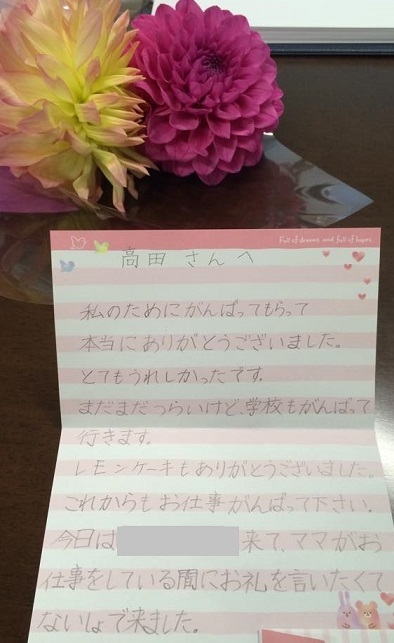 Full of dreams and full of hopes
高田 さんへ
私のためにがんばってもらって
本当にありがとうございました。
とてもうれしかったです。
まだまだつらいけど、学校もがんばって
行きます。
レモンケーキもありがとうございました。
これからもお仕事がんばって下さい。
今日は
来て、ママがお
仕事をしている間にお礼を言いたくて
ないしょで来ました。